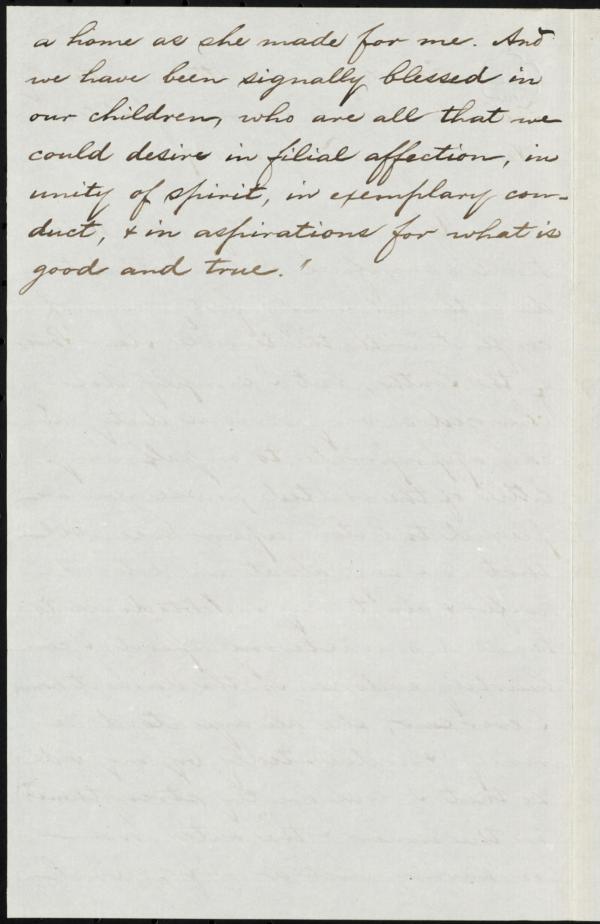 a home as she made for me. And
we have been signally blessed in
our children, who are all that we
could desire in filial affection, in
unity of spirit, in exemplary con-
duct, & in aspirations for what is
good and true.'